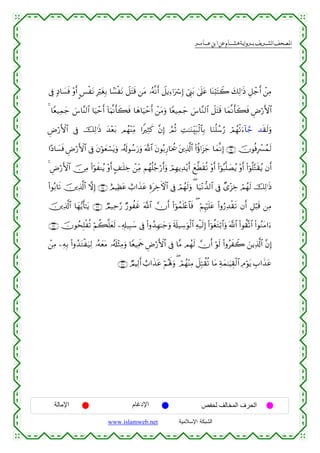 المصحف الشريف برواية هشام عن ابن عامر
مِنْ أَجْلِ ذَٰلِكَ كَتَبْنَا عَلَىٰ بَنِىٓ إِسْرَٰٓءِيلَ أَنَّهُۥ مَن قَتَلَ نَفْسًۢا بِغَيْرِ نَفْسٍ أَوْ فَسَادٍ فِى
ٱلْأَرْضِ فَكَأَنَّمَا قَتَلَ ٱلنَّاسَ جَمِيعًا وَمَنْ أَحْيَاهَا فَكَأَنَّمَآ أَحْيَا ٱلنَّاسَ جَمِيعًا
وَلَقَد جَّآءَتْهُمْ رُسُلُنَا بِٱلْبَيِّنَٰتِ ثُمَّ إِنَّ كَثِيرًا مِّنْهُم بَعْدَ ذَٰلِكَ فِى ٱلْأَرْضِ
لَمُسْرِفُونَ إِنَّمَا جَزَٰٓؤُا۟ ٱلَّذِينَ يُحَارِبُونَ ٱللَّهَ وَرَسُولَهُۥ وَيَسْعَوْنَ فِى ٱلْأَرْضِ فَسَادًا
أَن يُقَتَّلُوٓا۟ أَوْ يُصَلَّبُوٓا۟ أَوْ تُقَطَّعَ أَيْدِيهِمْ وَأَرْجُلُهُم مِّنْ خِلَٰفٍ أَوْ يُنفَوْا۟ مِنَ ٱلْأَرْضِ
ذَٰلِكَ لَهُمْ خِزْىٌ فِى ٱلدُّنْيَا وَلَهُمْ فِى ٱلْءَاخِرَةِ عَذَابٌ عَظِيمٌ إِلَّا ٱلَّذِينَ تَابُوا۟
مِن قَبْلِ أَن تَقْدِرُوا۟ عَلَيْهِمْ فَٱعْلَمُوٓا۟ أَنَّ ٱللَّهَ غَفُورٌ رَّحِيمٌ يَٰٓأَيُّهَا ٱلَّذِينَ
ءَامَنُوا۟ ٱتَّقُوا۟ ٱللَّهَ وَٱبْتَغُوٓا۟ إِلَيْهِ ٱلْوَسِيلَةَ وَجَٰهِدُوا۟ فِى سَبِيلِهِۦ لَعَلَّكُمْ تُفْلِحُونَ
إِنَّ ٱلَّذِينَ كَفَرُوا۟ لَوْ أَنَّ لَهُم مَّا فِى ٱلْأَرْضِ جَمِيعًا وَمِثْلَهُۥ مَعَهُۥ لِيَفْتَدُوا۟ بِهِۦ مِنْ
عَذَابِ يَوْمِ ٱلْقِيَٰمَةِ مَا تُقُبِّلَ مِنْهُمْ وَلَهُمْ عَذَابٌ أَلِيمٌ
الحرف المخالف لحفص الإدغام الإمالة
www.islamweb.net الشبكة الإسلامية